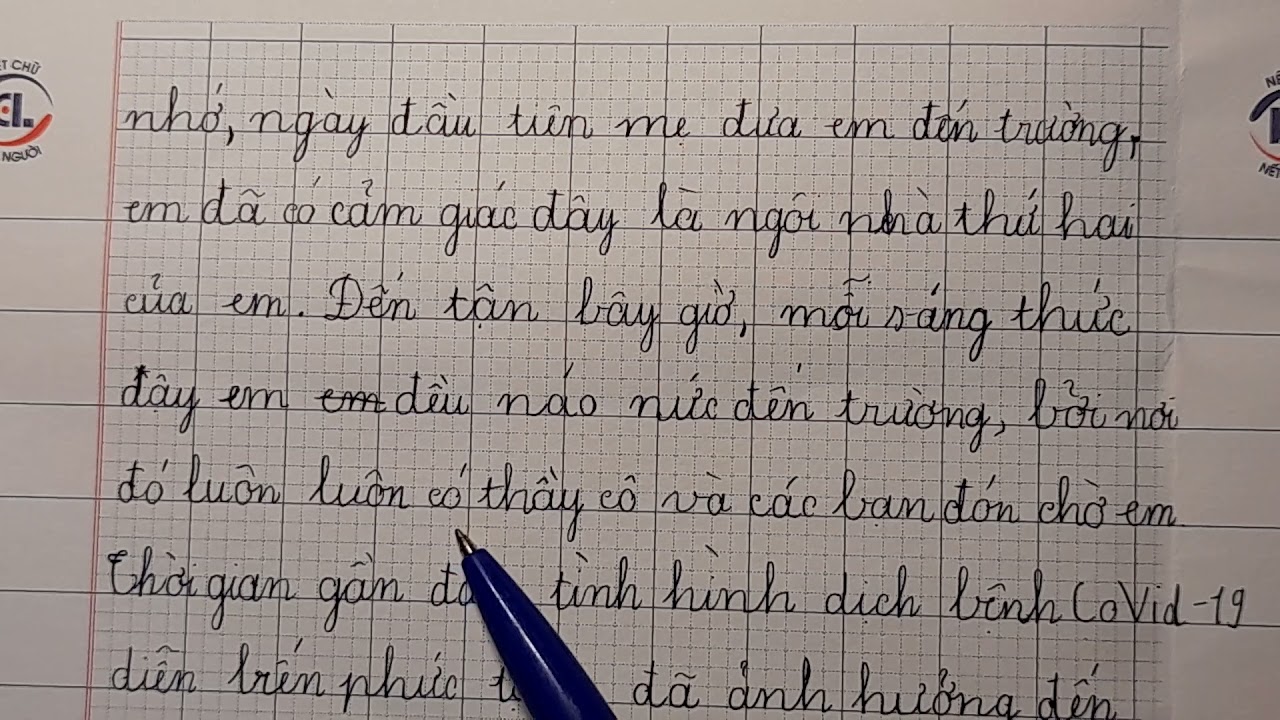 nhớ, ngày đầu tiên mẹ đưa em đến trường,
em đã có cảm giác đây là ngôi nhà thứ hai
của em. Đến tận bây giờ, mỗi sáng thức
dậy em em đều náo nức đến trường, bởi nơi
đó luôn luôn có thầy cô và các bạn đón chờ em
Thời gian gần tình hình dịch bệnh CoVid-19
diễn biến phức đã ảnh hưởng đến
ẾT CHỮ
NGƯỜI